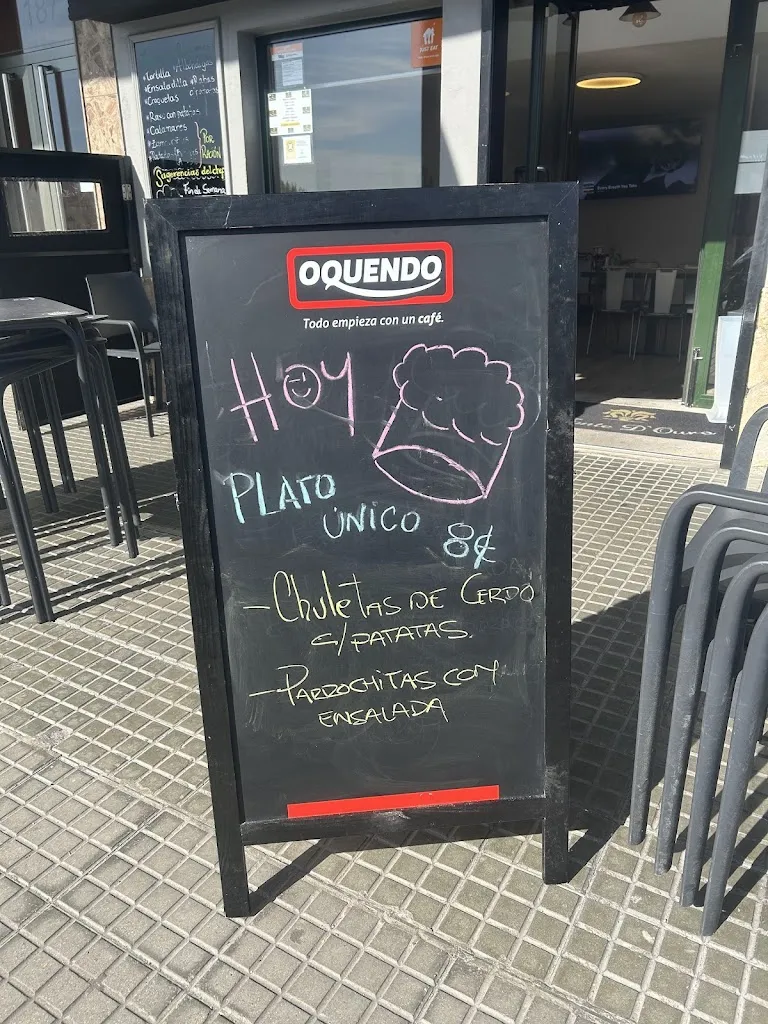 Zorbilla
Ensaladilla
Croquetas
Raxo con patatas
Calamares
POR
RACIÓN
Sugerencias del chef
Fin de Semana
JUST EAT
OQUENDO
Todo empieza con un café.
HOY
PLATO
ÚNICO 8€
- Chuletas de Cerdo
c/patatas.
- Parrochitas con
ensalada
D'Ouro